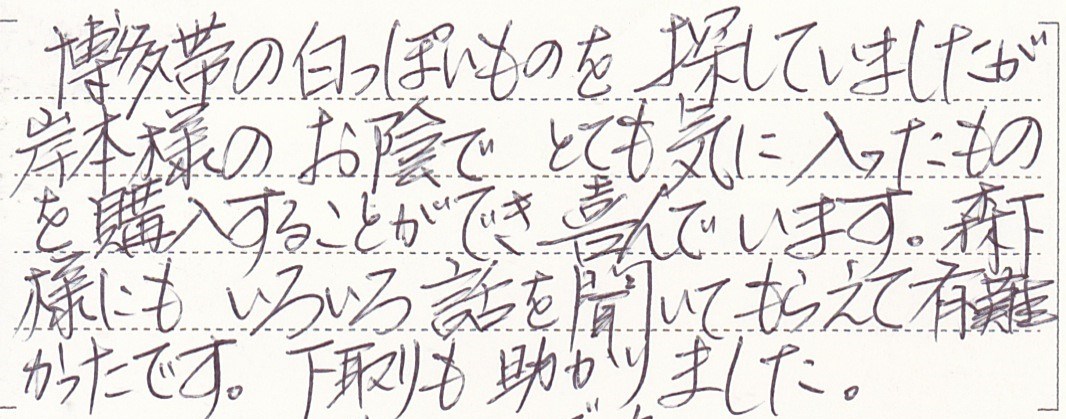 博多帯の白っぽいものを探していましたが
岸本様のお陰でとても気に入ったもの
を購入することができ喜んでいます。森下
様にもいろいろ話を聞いてもらえて有難
かったです。下取りも助かりました。